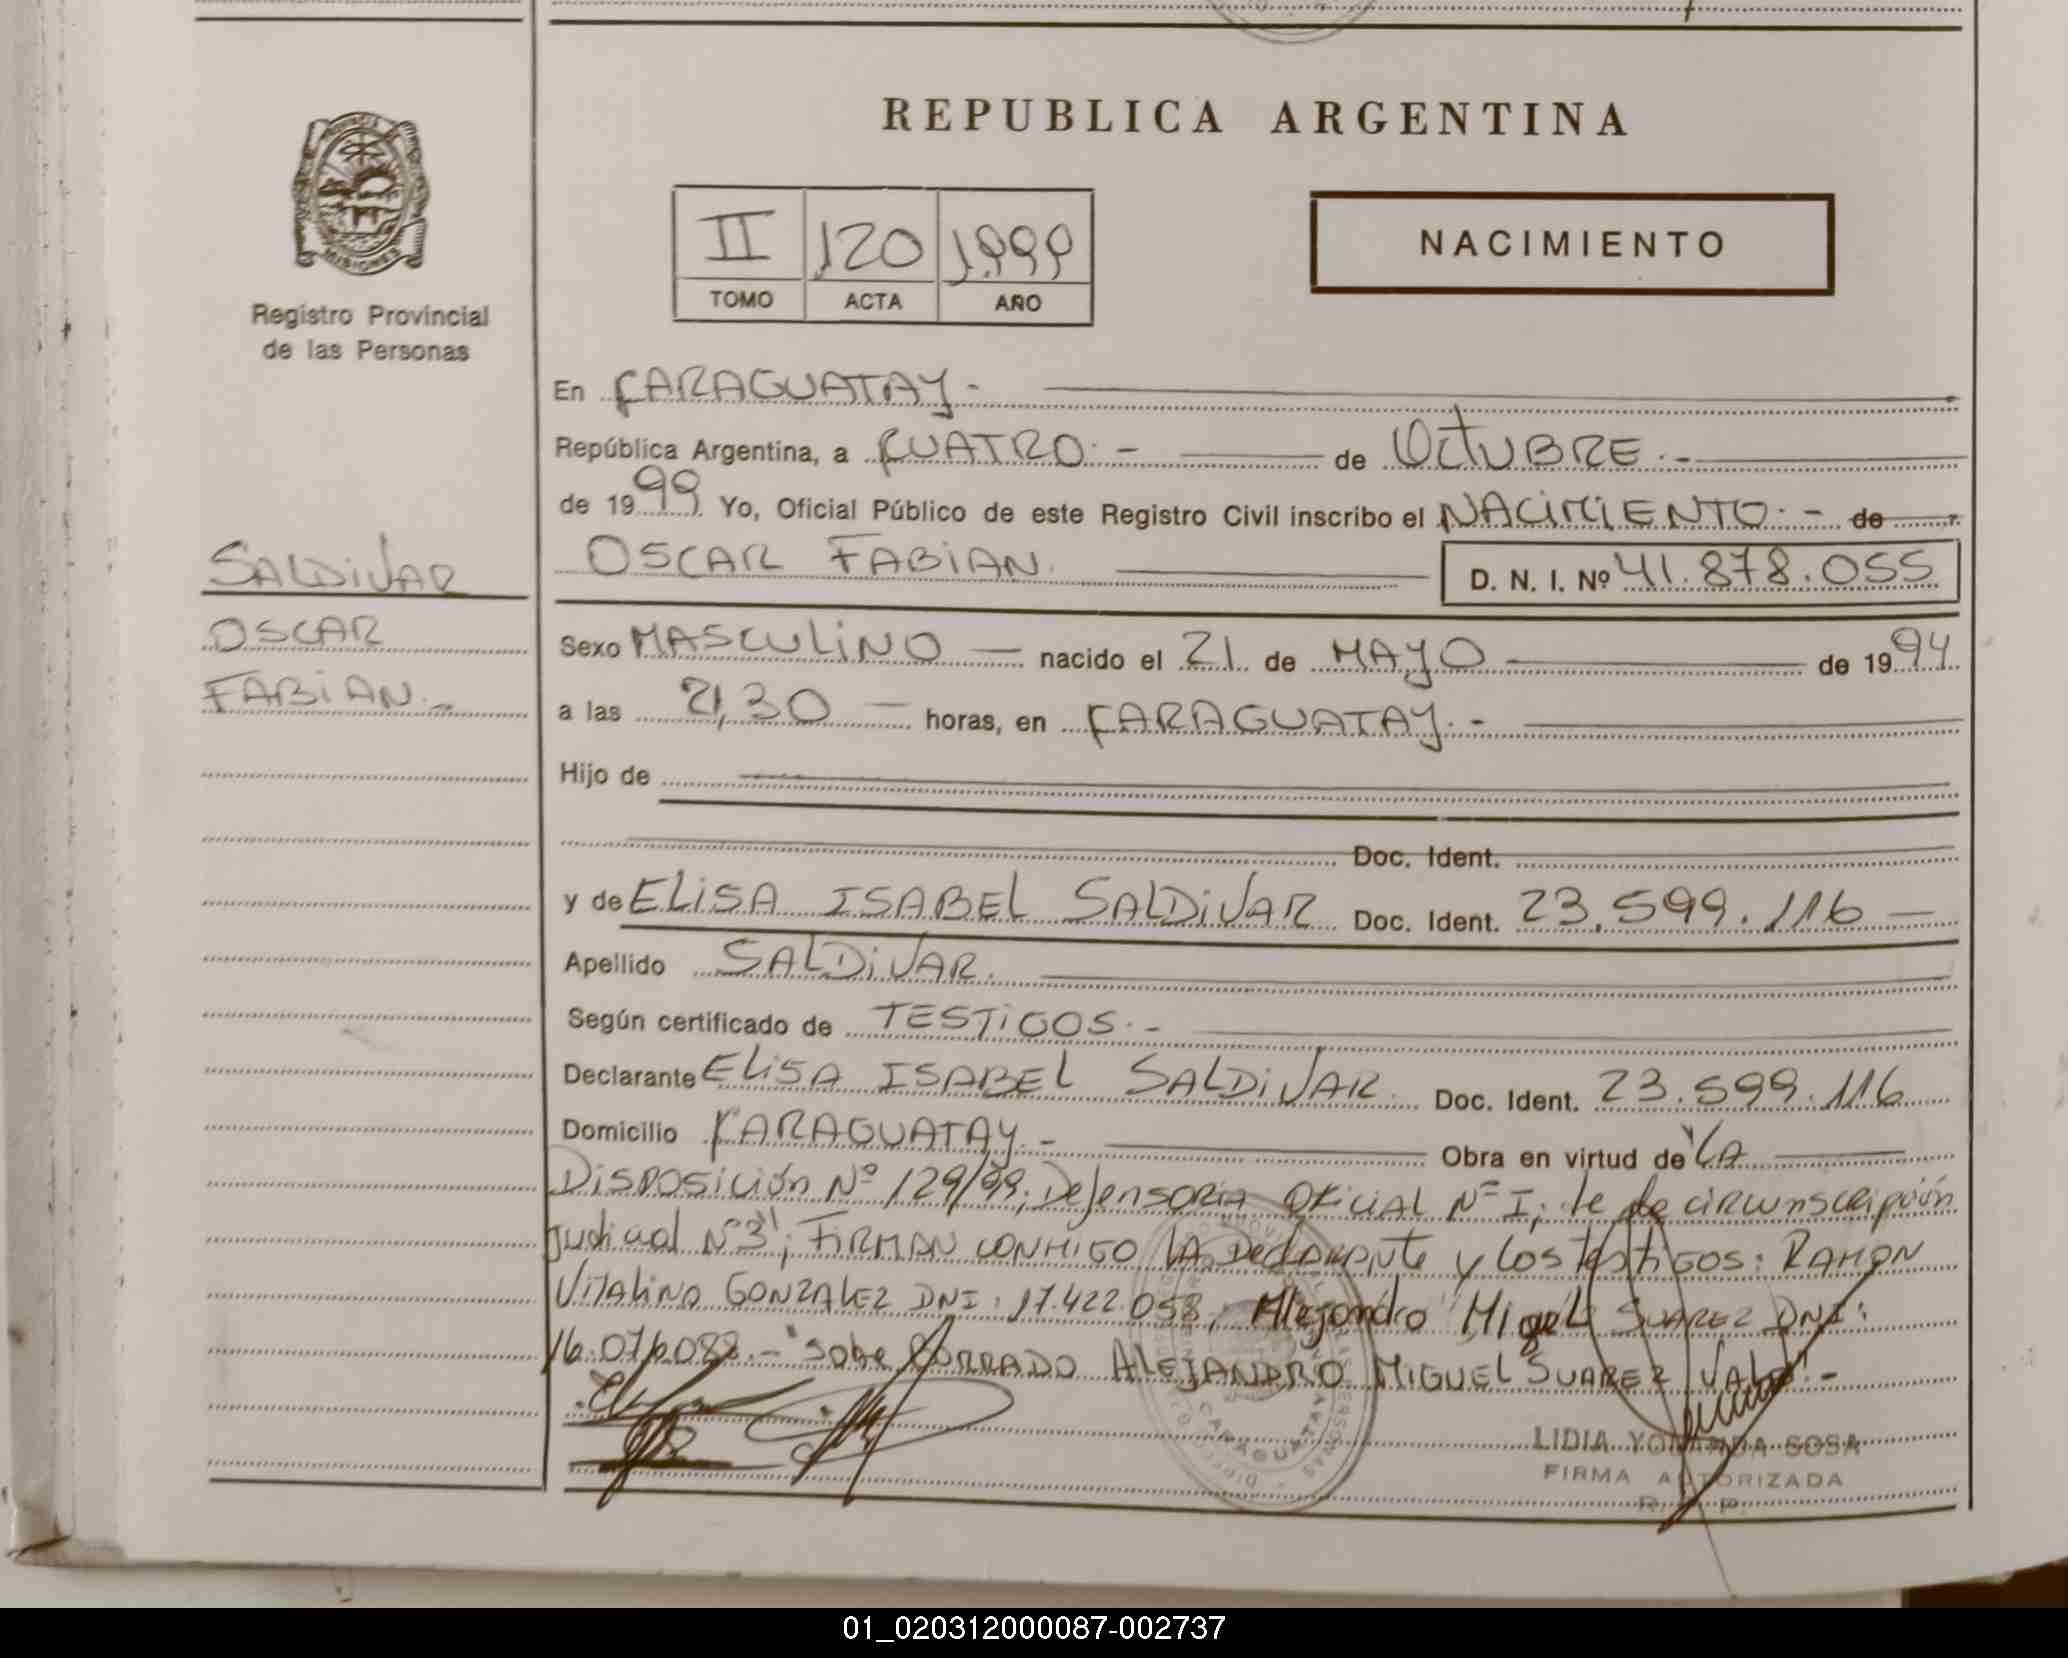 REPUBLICA ARGENTINA
PROVINCIA DE
MISIONES
Registro Provincial
de las Personas
II 120 1999
TOMO ACTA AÑO
NACIMIENTO
En CARAGUATAY.-
República Argentina, a CUATRO.- de OCTUBRE.-
de 1999 Yo, Oficial Público de este Registro Civil inscribo el NACIMIENTO.- de
OSCAR FABIAN. D. N. I. Nº 41.878.055
SALDIVAR
OSCAR
FABIAN.-
Sexo MASCULINO nacido el 21 de MAYO de 1994
a las 21,30 horas, en CARAGUATAY.-
Hijo de
Doc. Ident.
y de ELISA ISABEL SALDIVAR Doc. Ident. 23.599.116
Apellido SALDIVAR.
Según certificado de TESTIGOS.-
Declarante ELISA ISABEL SALDIVAR Doc. Ident. 23.599.116
Domicilio CARAGUATAY.- Obra en virtud de "LA
Disposición Nº 129/99, Defensoria OFICIAL Nº I, de circunscripción
Judicial Nº3"; FIRMAN CONMIGO LA Declarante y Los testigos: RAMON
VITALINO GONZALEZ DNI: 17.422.058, Alejandro Migel SUAREZ DNI:
16.076.088.- "Sobre BORRADO ALEJANDRO MIGUEL SUAREZ VALE".-
CARAGUATAY
LIDIA YOLANDA SOSA
FIRMA AUTORIZADA
R. P.
01_020312000087-002737